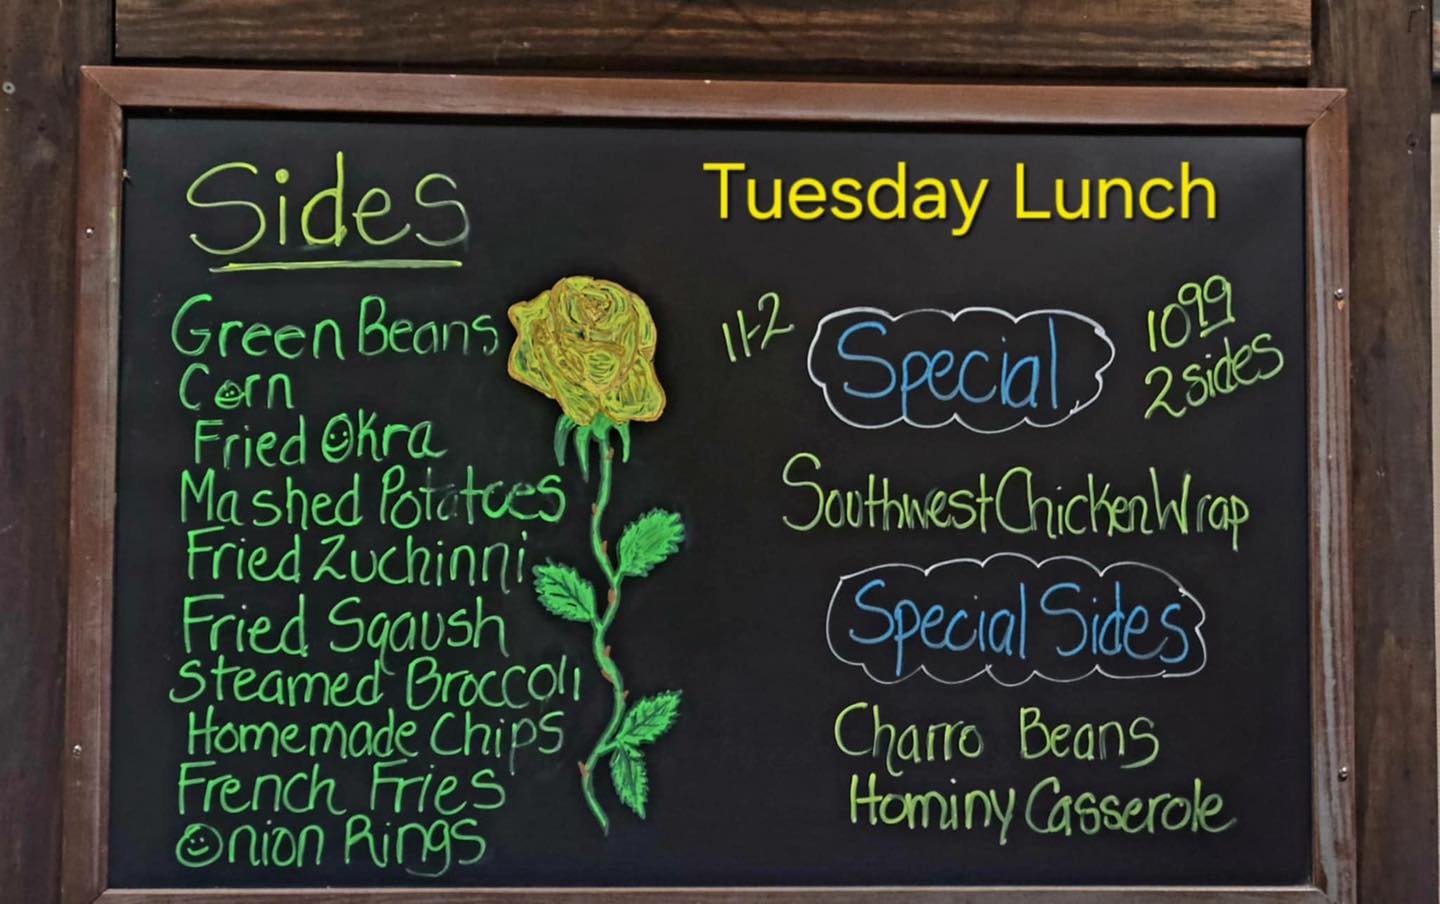 Sides
Green Beans
Corn
Fried Okra
Mashed Potatoes
Fried Zuchinni
Fried Sqaush
Steamed Broccoli
Homemade Chips
French Fries
Onion Rings
Tuesday Lunch
11-2
Special
1099
2 sides
Southwest Chicken Wrap
Special Sides
Charro Beans
Hominy Casserole